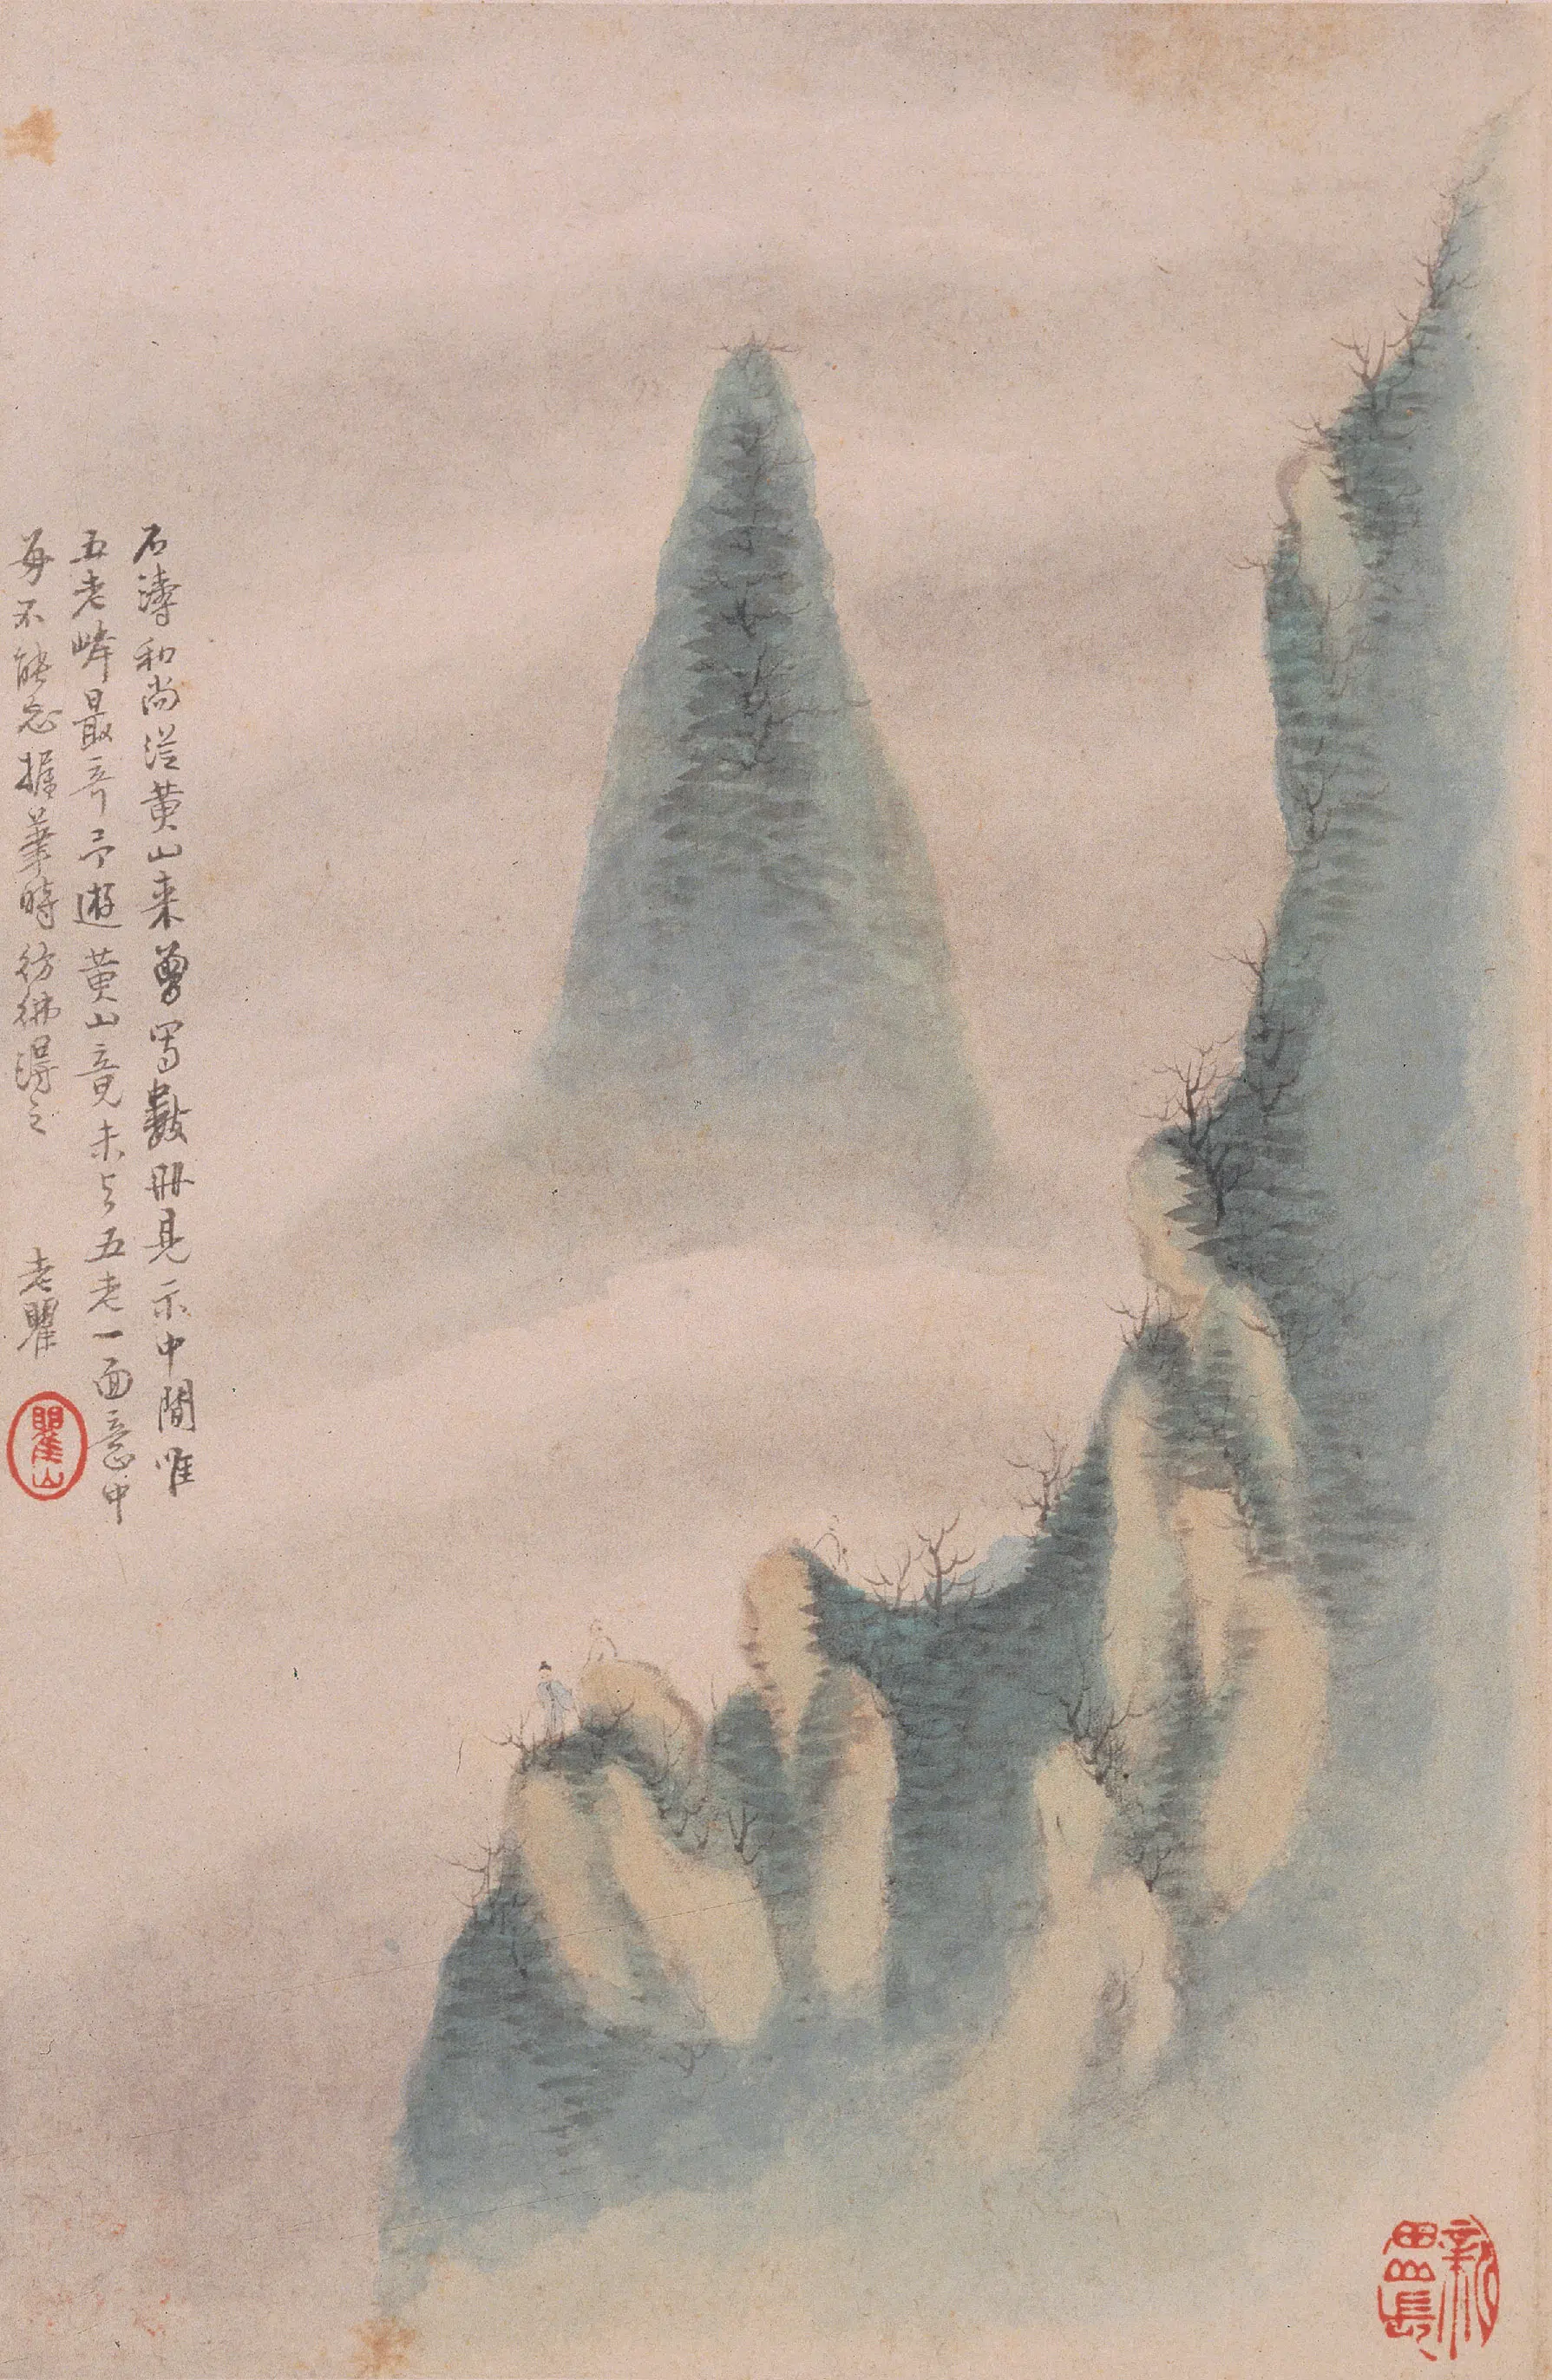 石濤和尚從黃山來曾寫數冊見示中間唯
五老峰最奇予遊黃山竟未與五老一面意中
每不能忘握筆時彷彿得之
老瞿
瞿山